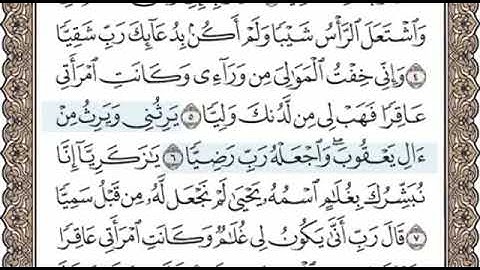 وَٱشۡتَعَلَ ٱلرَّأۡسُ شَيۡبٗا وَلَمۡ أَكُنۢ بِدُعَآئِكَ رَبِّ شَقِيّٗا
٤ وَإِنِّي خِفۡتُ ٱلۡمَوَٰلِيَ مِن وَرَآءِي وَكَانَتِ ٱمۡرَأَتِي
عَاقِرٗا فَهَبۡ لِي مِن لَّدُنكَ وَلِيّٗا ٥ يَرِثُنِي وَيَرِثُ مِنۡ
ءَالِ يَعۡقُوبَۖ وَٱجۡعَلۡهُ رَبِّ رَضِيّٗا ٦ يَٰزَكَرِيَّآ إِنَّا
نُبَشِّرُكَ بِغُلَٰمٍ ٱسۡمُهُۥ يَحۡيَىٰ لَمۡ نَجۡعَل لَّهُۥ مِن قَبۡلُ سَمِيّٗا
٧ قَالَ رَبِّ أَنَّىٰ يَكُونُ لِي غُلَٰمٞ وَكَانَتِ ٱمۡرَأَتِي عَاقِرٗا